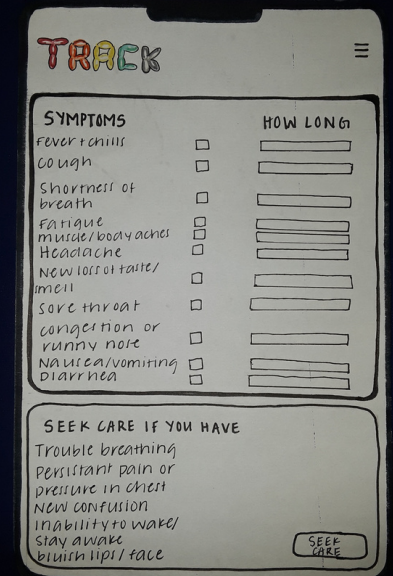 TRACK
SYMPTOMS
HOW LONG
Fever + chills
cough
Shortness of
breath
Fatigue
muscle/body aches
Headache
New loss of taste/
smell
sore throat
congestion or
runny nose
Nausea/vomiting
Diarrhea
SEEK CARE IF YOU HAVE
Trouble breathing
Persistant pain or
pressure in chest
New confusion
Inability to wake/
stay awake
bluish lips/face
SEEK
CARE